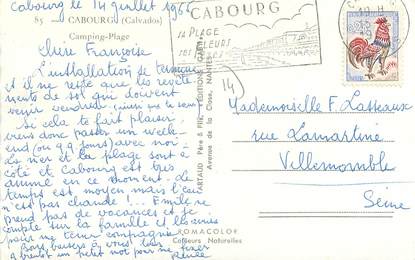 Cabourg le 14 juillet 1966
85 CABOURG (Calvados)
Camping-Plage
Chère Françoise
L'installation se termine
et il ne reste que les revête-
ments de sol qui doivent
venir vendredi
Si cela te fait plaisir
viens donc passer un week
end (ou qq jours) avec nous
La mer et la plage sont à
côté et Cabourg est très
animé en ce moment. Le
temps est moyen mais l'eau
est chaude ! ... Emile ne
prend pas de vacances et je
compte sur la famille et les amis
pour me tenir compagnie
Bons baisers à vous tous
un petit mot pour me fixer
CABOURG
SA PLAGE
SES FLEURS
14
ARTAUD Père & Fils, ÉDITIONS GABY
Avenue de la Close, NANTES
ROMACOLOR
Couleurs Naturelles
Mademoiselle F. Lasseaux
rue Lamartine
Villemomble
Seine